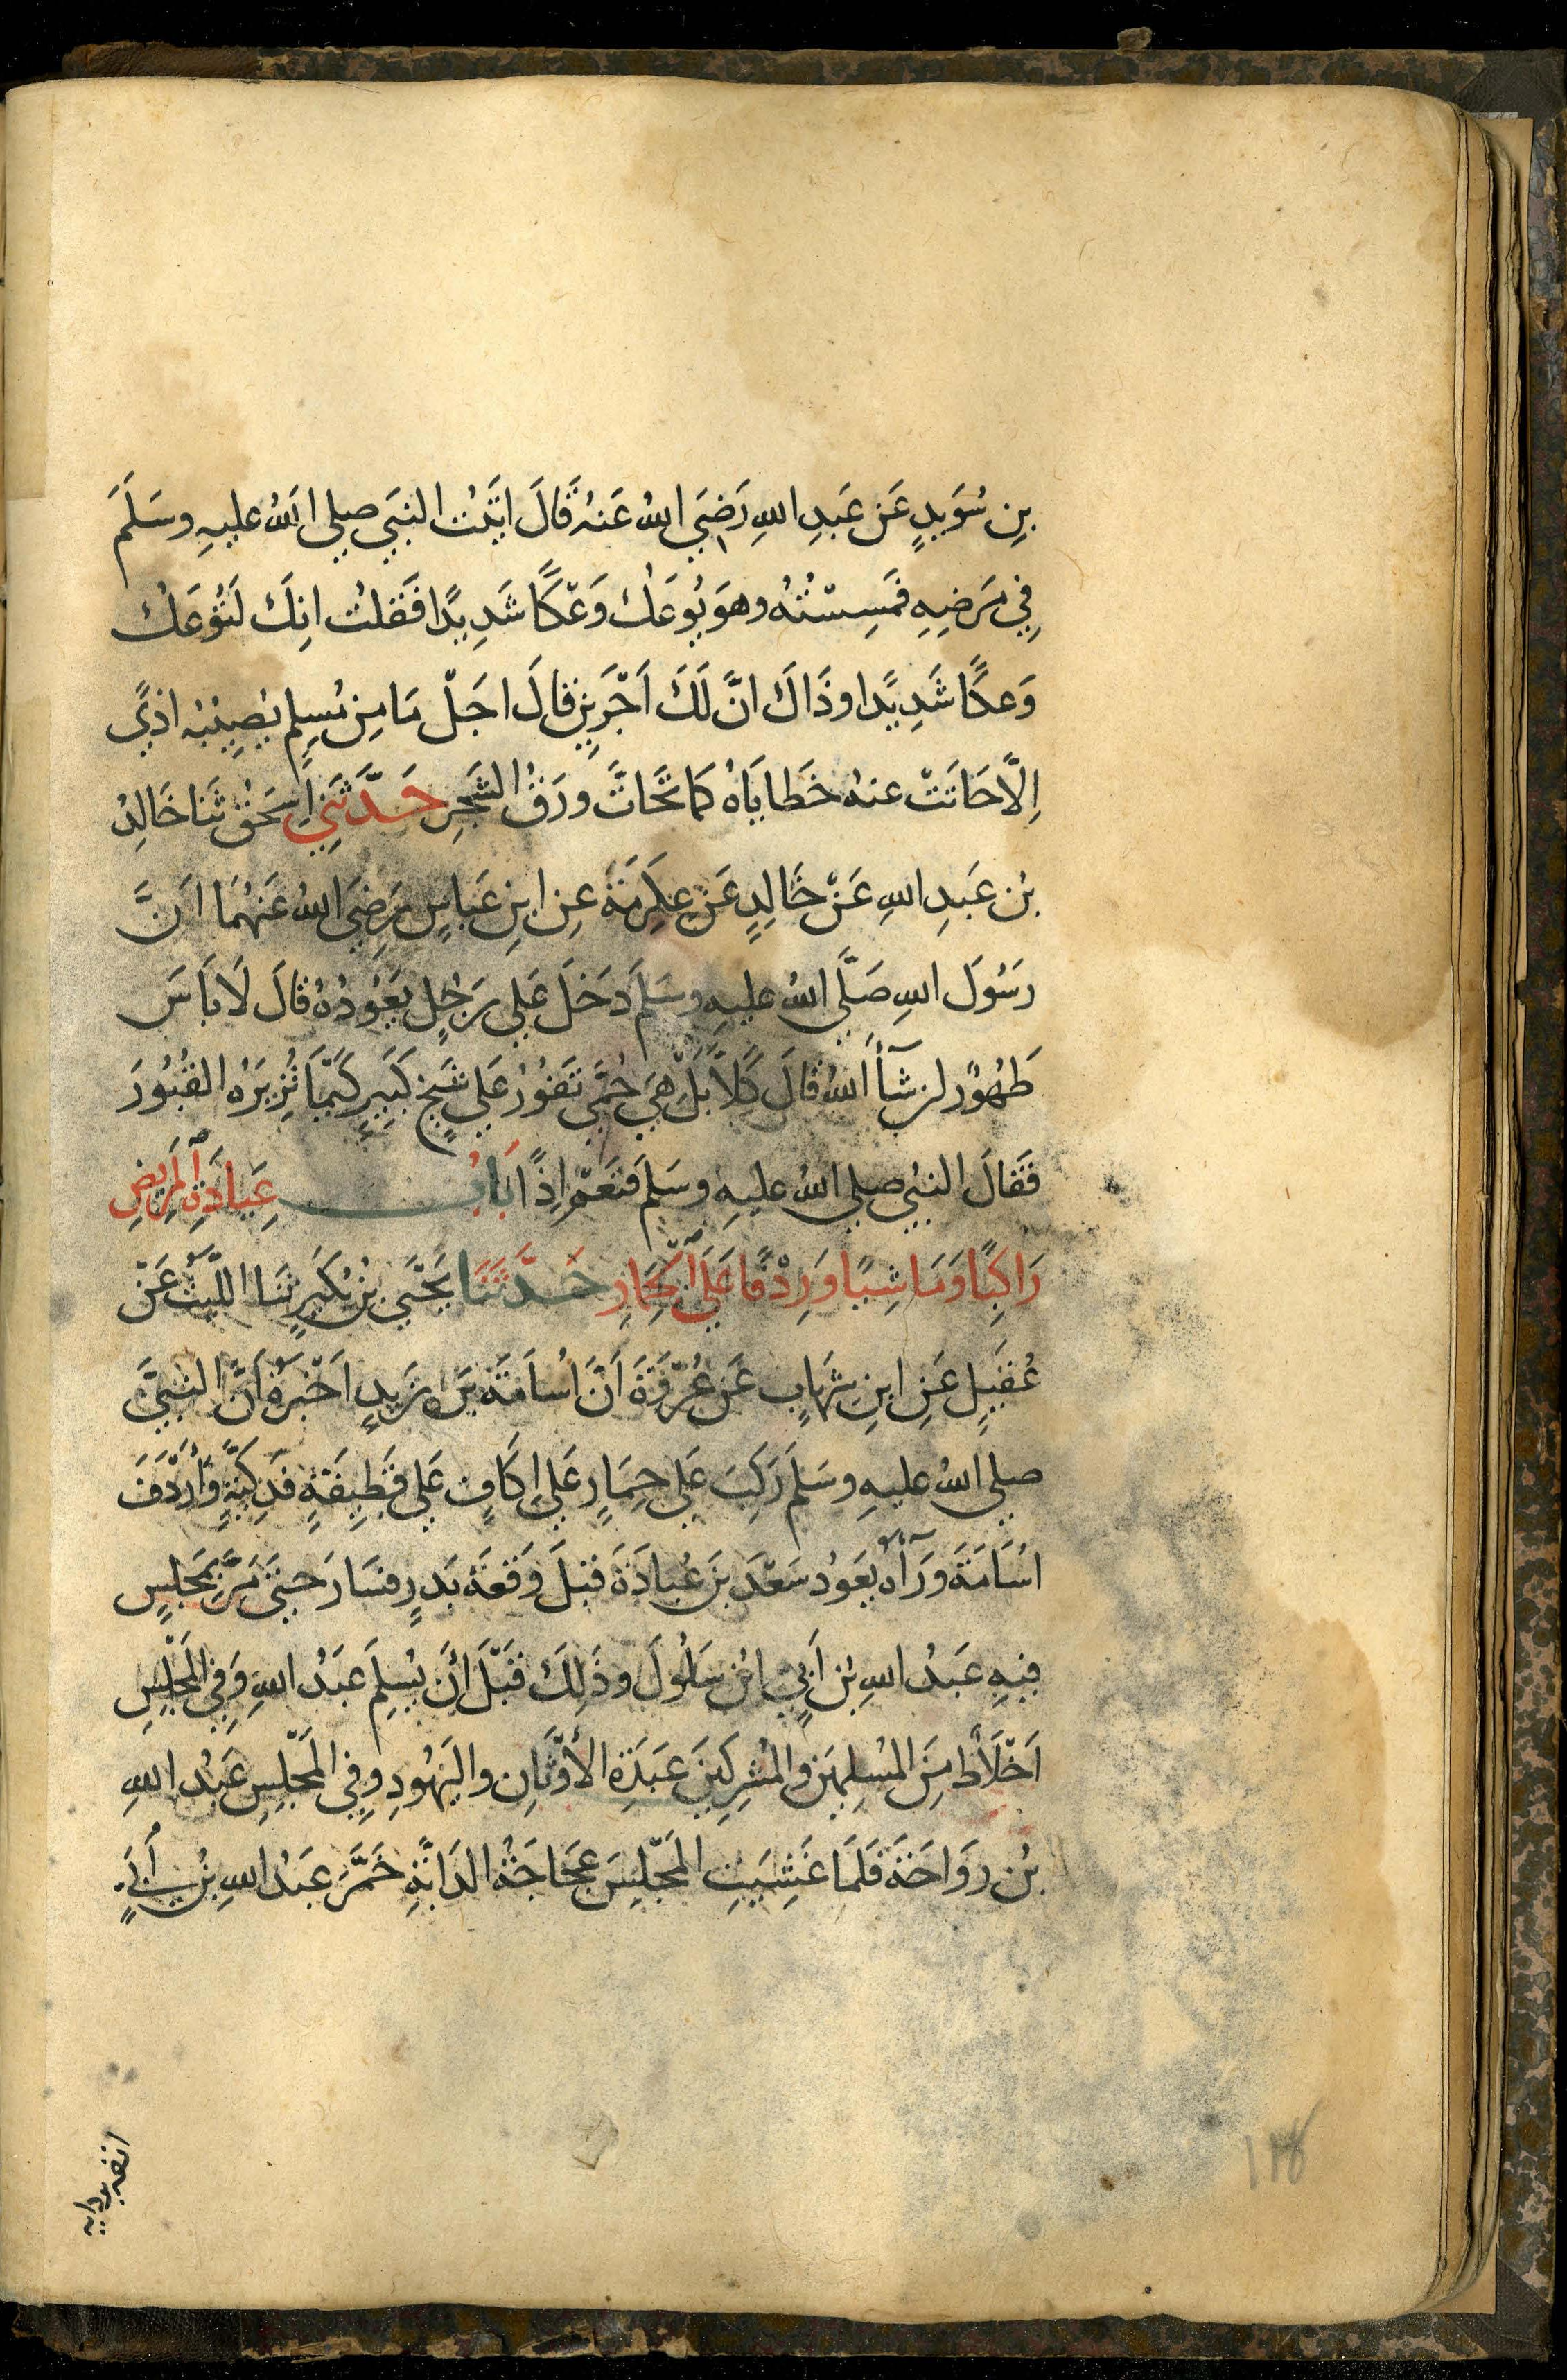 بنِ سُوَيدٍ عَن عَبدِ اللهِ رَضِيَ اللهُ عَنهُ قَالَ اتَيتُ النبيَ صلي اللهُ عليهِ وسَلَمَ
فِي مَرَضِهِ فمَسِسْتُهُ وهوَ يُوعَكُ وَعْكًا شَدِيدًا فَقلتُ انكَ لتُوعَكُ
وَعكًا شَدِيدًا وذَاكَ انَّ لَكَ اَجْرَينِ قالَ اجَلْ مَا مِن مُسلِمٍ يُصِيبُه اذيً
اِلاَّ حَاتتْ عنهُ خَطايَاهُ كمَا تَحَاتَّ ورَقُ الشَجَرِ حَدَّثَنِي اِسحٰق ثنَا خَالِدُ
بنُ عَبدِ اللهِ عَنْ خَالِدٍ عَن عِكرِمَةَ عنِ ابنِ عَباسٍ رَضِيَ اللهُ عَنهُمَا اَنَّ
رَسُولَ اللهِ صَلَّي اللهُ عليهِ وسَلمَ دَخَلَ عَلي رَجُلٍ يَعُودُهُ قالَ لَا بَأسَ
طَهُورٌ ان شَآءَ اللهُ قالَ كَلاَّ بَلْ هِيَ حُمَّي تَفُورُ عَلي شَيخٍ كَبيرٍ كَيمَا تُزِيرَهُ القُبُورَ
فَقالَ النبيُ صلي اللهُ عليهِ وسَلمَ فنَعَمْ اِذًا بَابُ عِيادَةِ المَرِيضِ
رَاكِبًا وَمَاشِيًا وَرِدْفًا عَلَي الحِمَارِ حَدَّثَنَا يَحْيَي بنُ بُكَيرٍ ثنَا اللَّيثُ عَنْ
عُقَيلٍ عَنِ ابنِ شِهَابٍ عَن عُرْوَةَ اَنَّ اُسَامَةَ بنَ زَيدٍ اَخْبَرَهُ اَنَّ النبيَّ
صلي اللهُ عليهِ وسَلمَ رَكِبَ عَلي حِمَارٍ عَلي اِكَافٍ عَلي قَطِيفَةٍ فَدَكِيَّةٍ وَاَرْدَفَ
اُسَامَةَ ورَآءَهُ يَعُودُ سَعْدَ بنَ عُبادَةَ قبلَ وَقعَةِ بَدرٍ فسَارَ حتيَ مَرَّ بمَجلِسٍ
فيهِ عَبدُ اللهِ بنُ اَبيٍ ابنُ سَلُولَ وذَلِكَ قَبْلَ اَنْ يُسلِمَ عَبدُ اللهِ وَفِي المَجْلِسِ
اَخْلَاطٌ مِنَ المُسلِمينَ والمُشرِكِينَ عَبَدَةِ الأوْثَانِ واليَهُودِ وفِي المَجْلِسِ عَبدُ اللهِ
بنُ رَوَاحَةَ فَلمَا غَشِيَتِ المَجْلِسَ عَجَاجَةُ الدَابَّةِ خَمَّرَ عَبدُ اللهِ بنُ اُبَيٍ
انفه بردايه